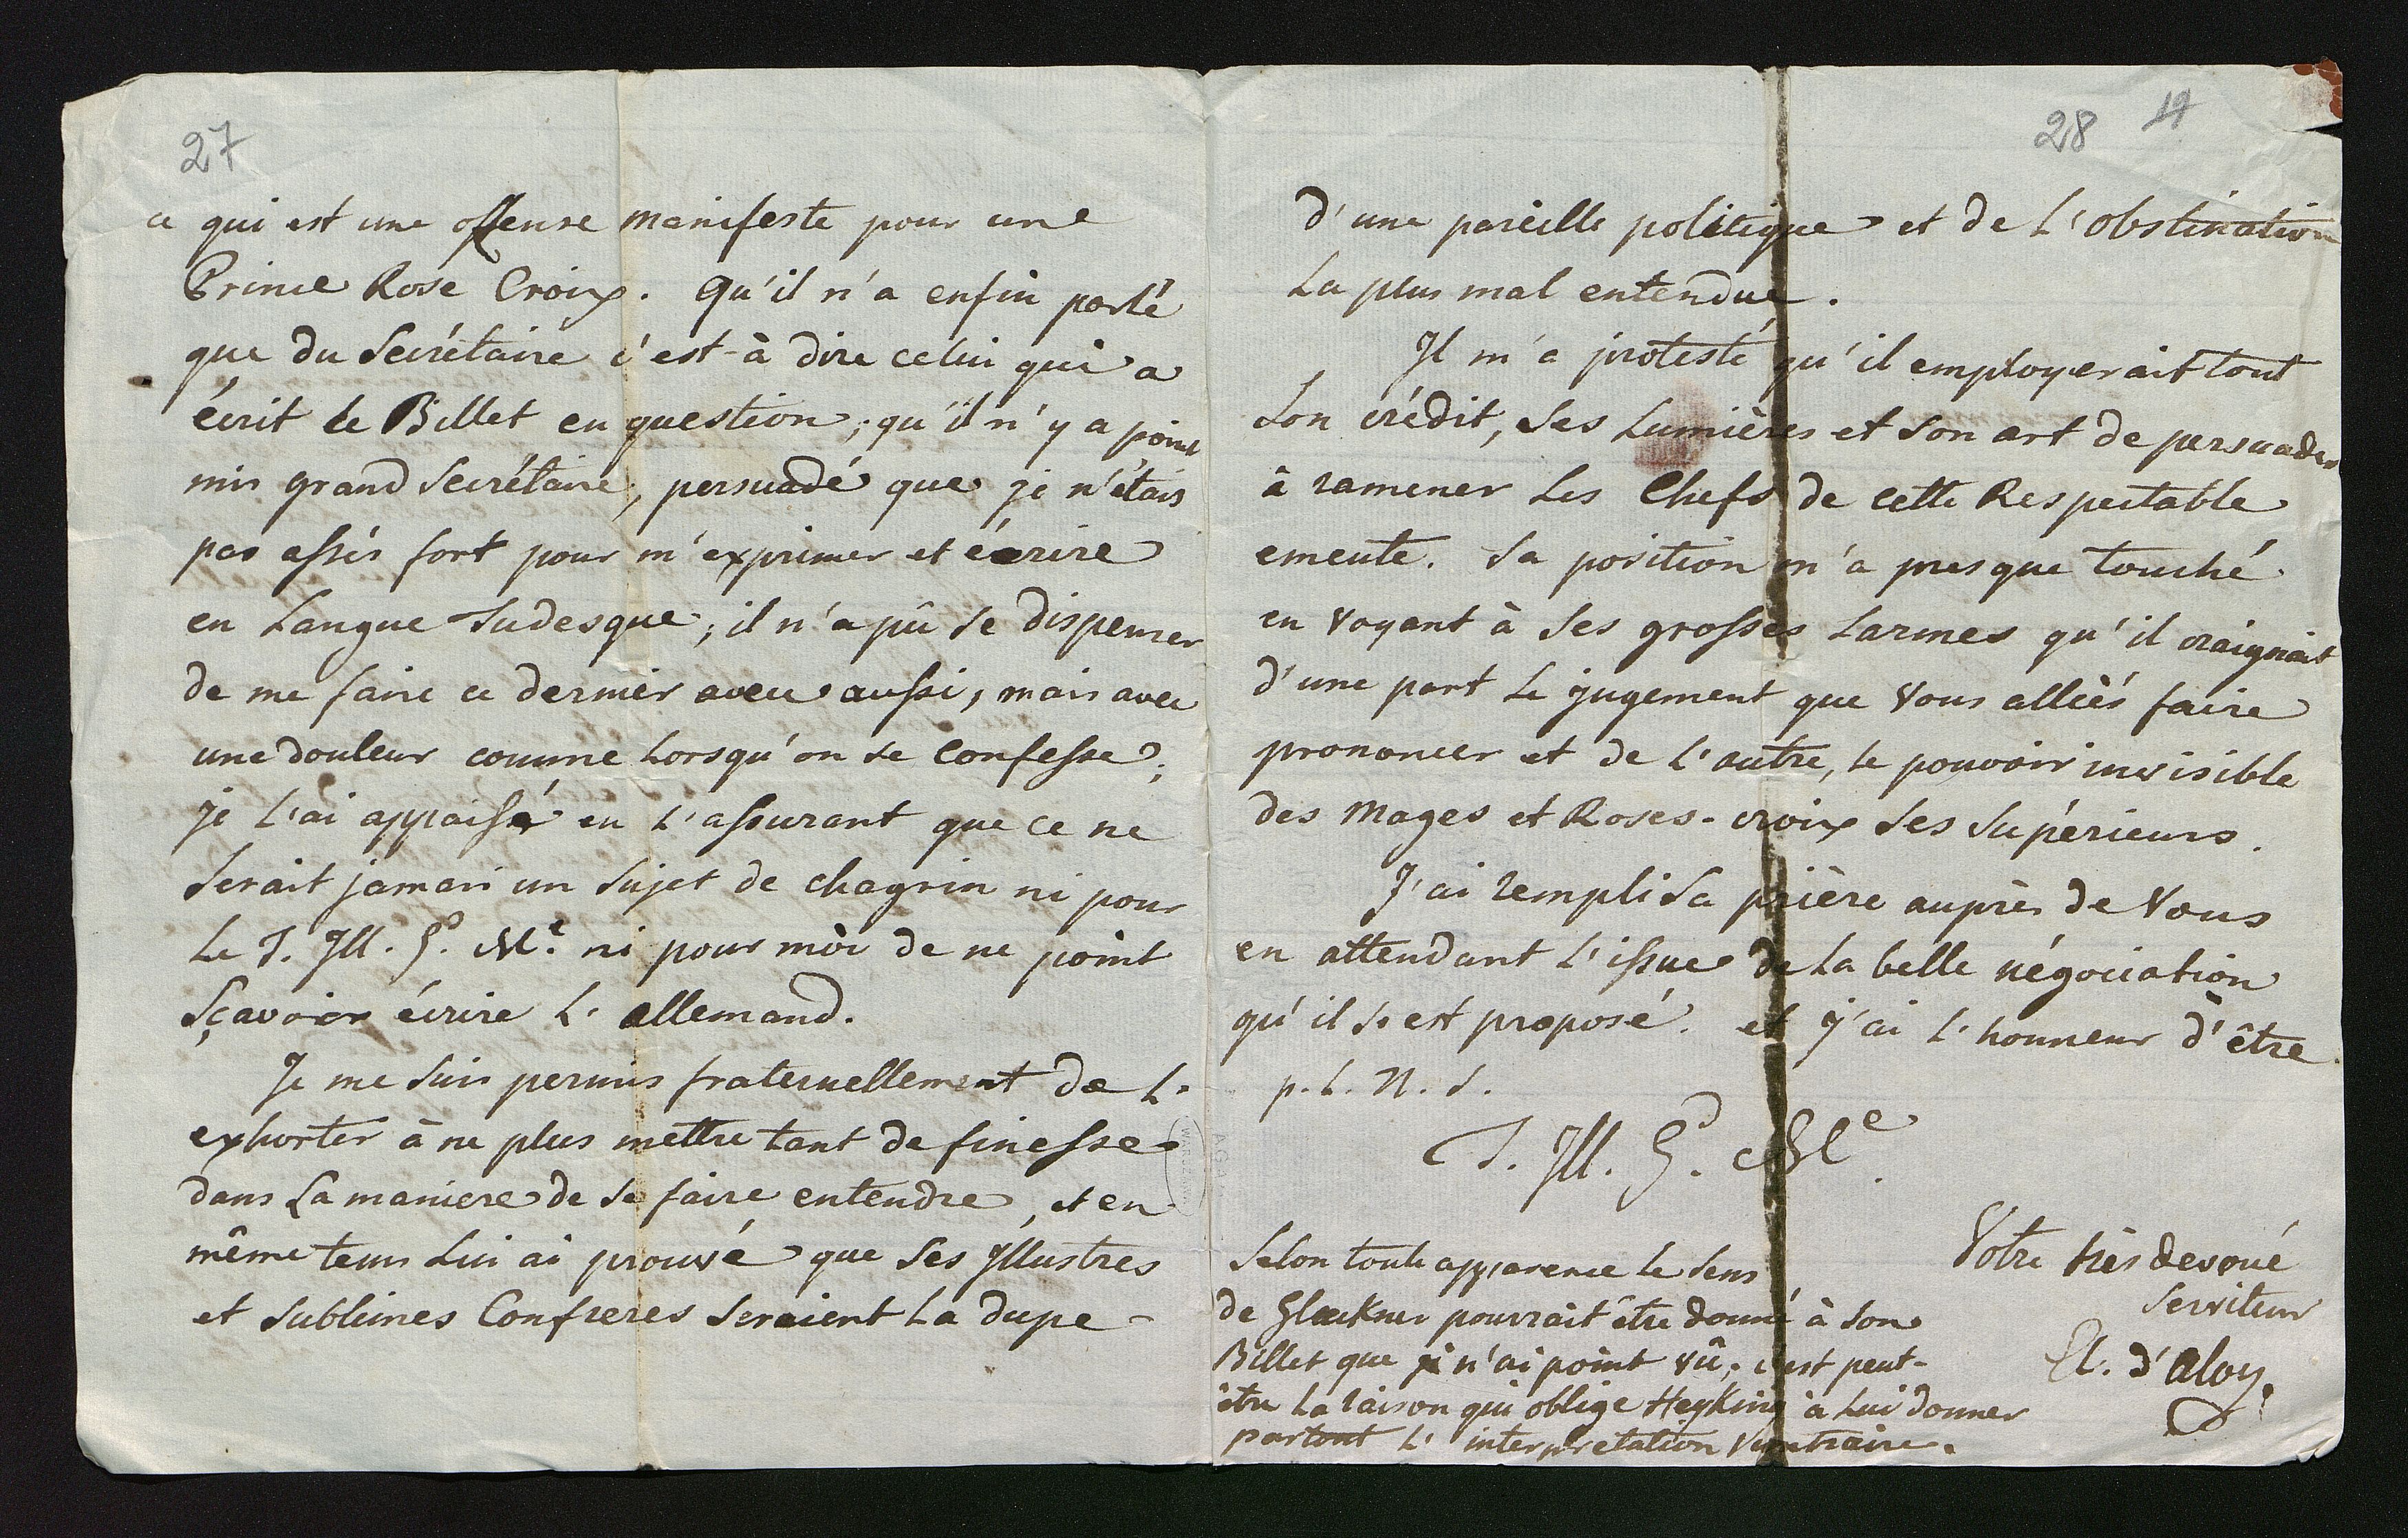 27
ce qui est une offense manifeste pour une
Prince Rose Croix. Qu'il n'a enfin parlé
que du Secrétaire c'est-à dire celui qui a
écrit le Billet en question; qu'il n'y a point
mis grand Secrétaire, persuadé que je n'étais
pas assés fort pour m'exprimer et écrire
en Langue Tudesque; il n'a pû se dispenser
de me faire ce dernier aveu aussi, mais avec
une douleur comme Lorsqu'on se Confesse;
je L'ai appaisé en L'assurant que ce ne
serait jamais un sujet de chagrin ni pour
Le T. Ill. G. Me. ni pour moi de ne point
Sçavoir écrire L'allemand.
Je me suis permis fraternellement de L'
exhorter à ne plus mettre tant de finesse
dans La maniere de se faire entendre, et en
même tems Lui ai prouvé que ses Illustres
et sublimes Confreres seraient La dupe-
28
d'une pareille politique et de L'obstination
La plus mal entendue.
Il m'a protesté qu'il employerait tout
son crédit, ses Lumières et son art de persuader
à ramener Les Chefs de cette Respectable
emeute. Sa position m'a presque touché
en voyant à ses grosses Larmes qu'il craignait
d'une part Le jugement que vous alliés faire
prononcer et de L'autre, le pouvoir invisible
des Mages et Roses-croix ses Supérieurs.
J'ai rempli sa prière auprès de Vous
en attendant L'issue de La belle négociation
qu'il s'est proposé. et j'ai L'honneur d'être
p. L. N. S.
T. Ill. G. Me.
Votre très devoué
Serviteur
d'Aloy.
Selon toute apparence le sens
de Glaeckner pourrait être donné à son
Billet que je n'ai point vû; c'est peut-
être La raison qui oblige Heyking à Lui donner
partout L'interprétation contraire.